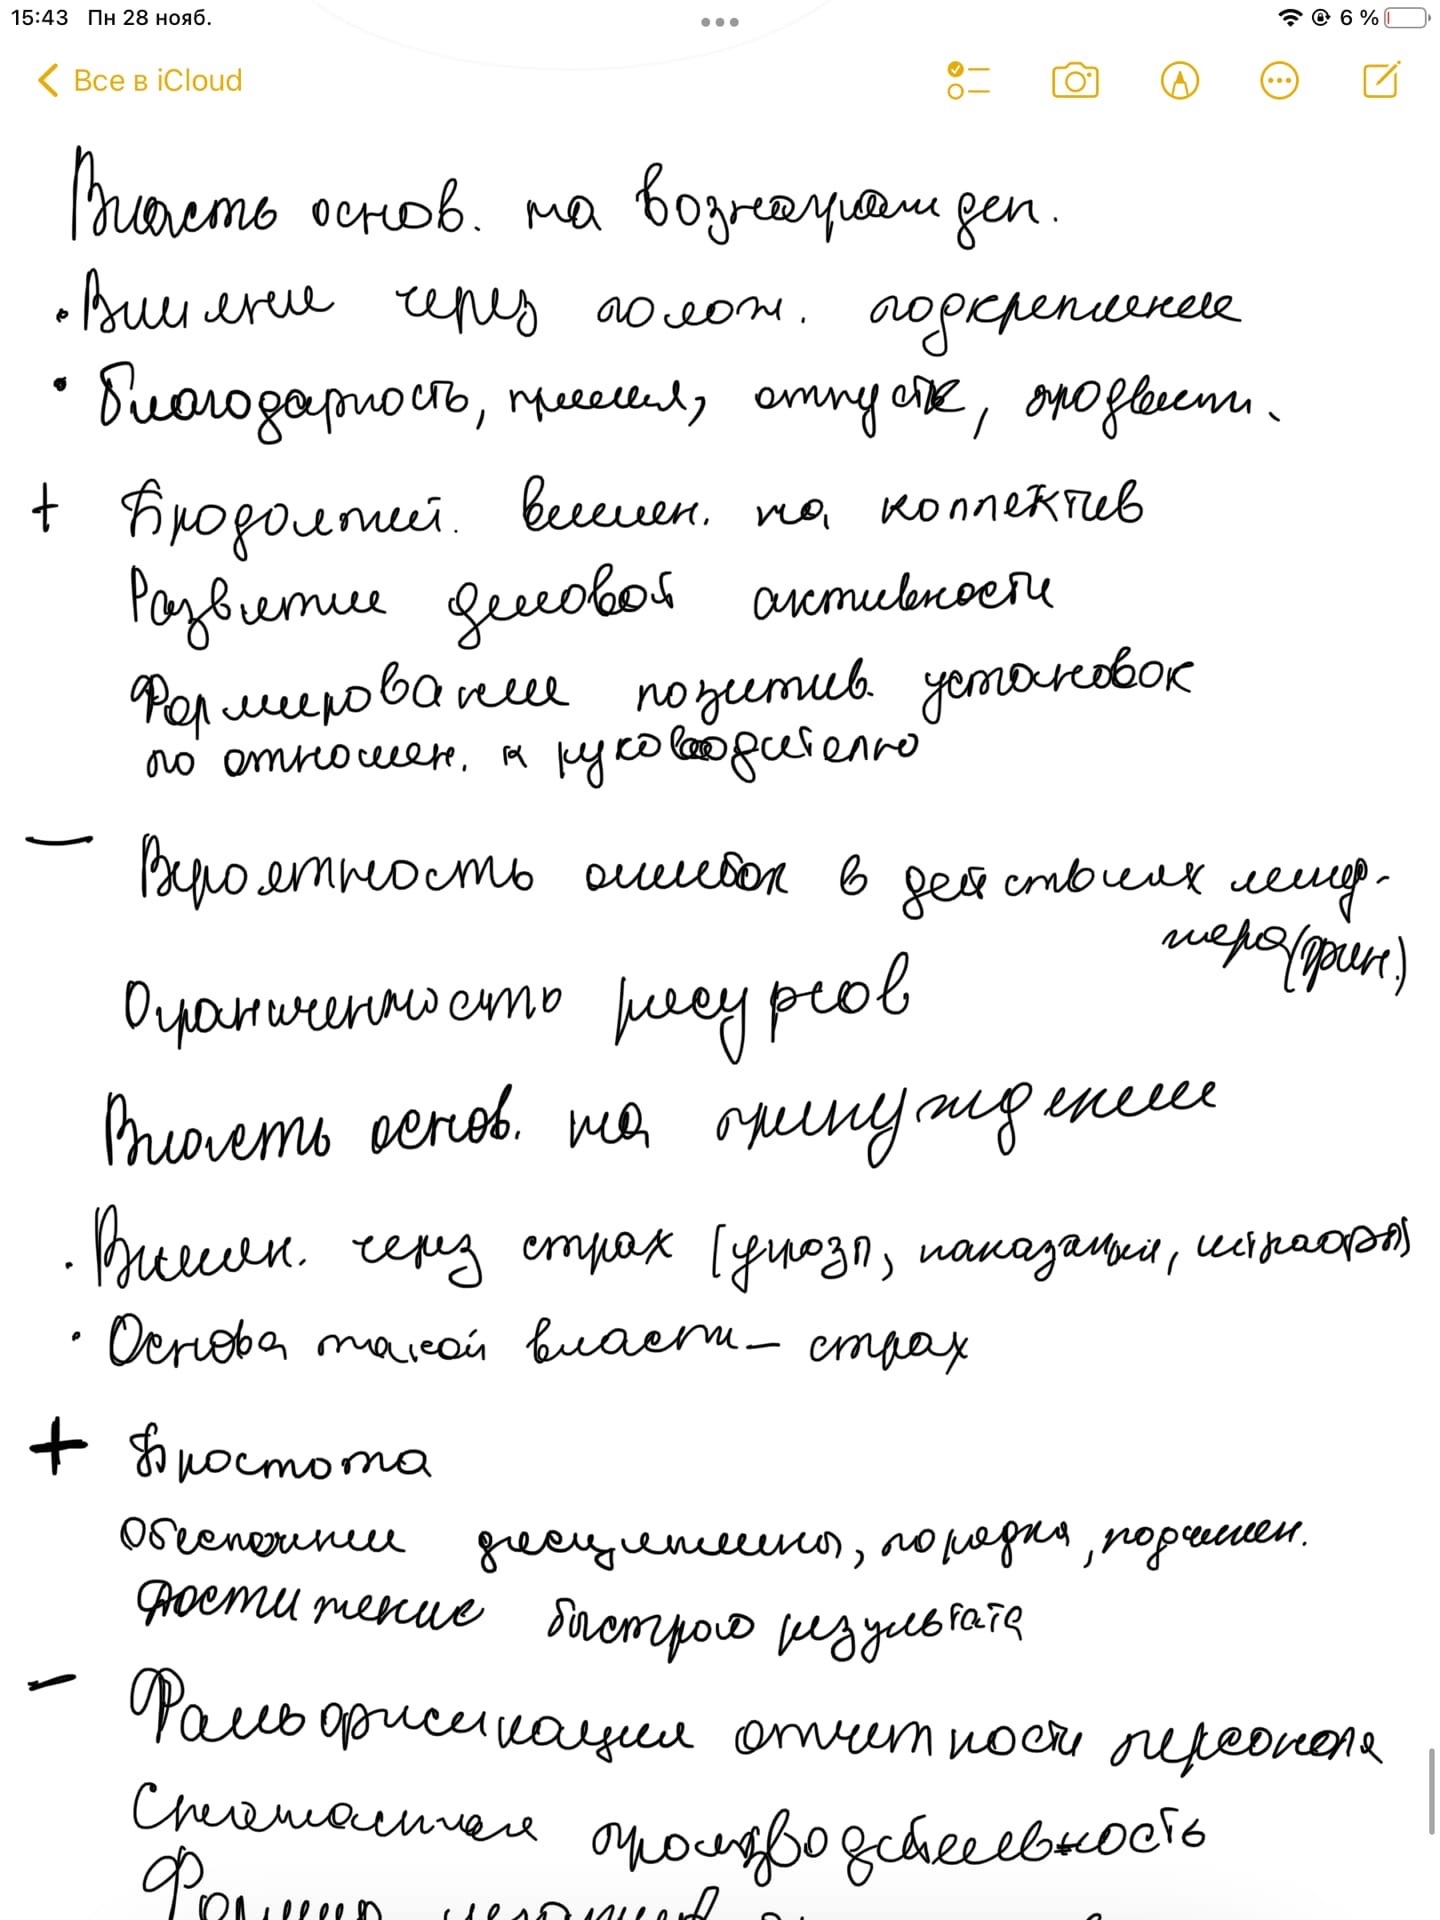 15:43 Пн 28 нояб. 6 %
Все в iCloud
Власть основ. на вознагражден.
• Влияние через полож. подкрепление
• Благодарность, премия, отпуск, продвиж.
+ Продолжит. влиян. на коллектив
Развитие деловой активности
Формирование позитив. установок
по отношен. к руководителю
— Вероятность ошибок в действиях менед-
жера (фин.)
Ограниченность ресурсов
Власть основ. на принуждение
• Влиян. через страх (угрозы, наказания, штрафы)
• Основа такой власти – страх
+ Простота
Обеспечение дисциплины, порядка, подчинен.
Достижение быстрого результата
– Фальсификация отчетности персонала
производительность